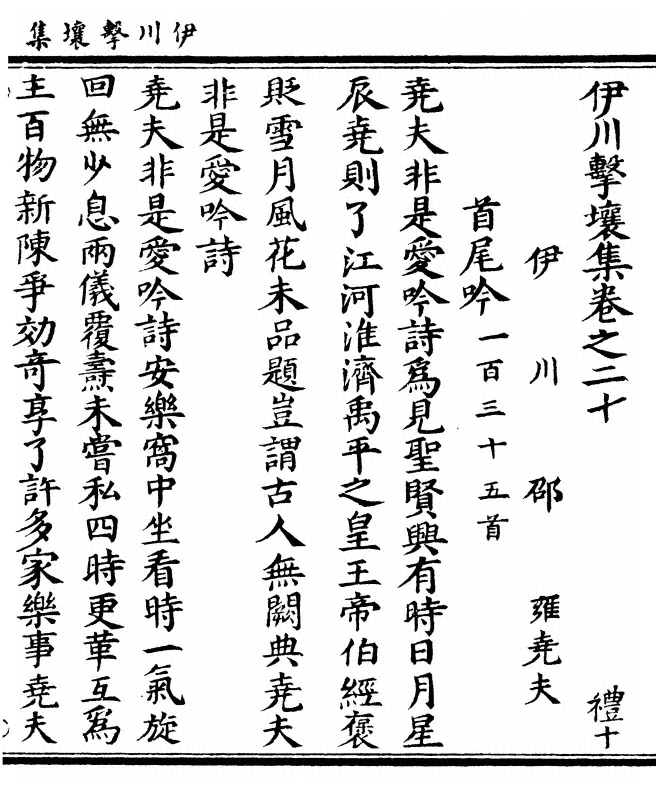 伊川擊壤集
伊川擊壤集卷之二十
禮十
伊川邵雍堯夫
首尾吟一百三十五首
堯夫非是愛吟詩爲見聖賢興有時日月星
辰堯則了江河淮濟禹平之皇王帝伯經褒
貶雪月風花未品題豈謂古人無闕典堯夫
非是愛吟詩
堯夫非是愛吟詩安樂窩中坐看時一氣旋
回無少息兩儀覆燾未嘗私四時更革互爲
主百物新陳爭効奇享了許多家樂事堯夫